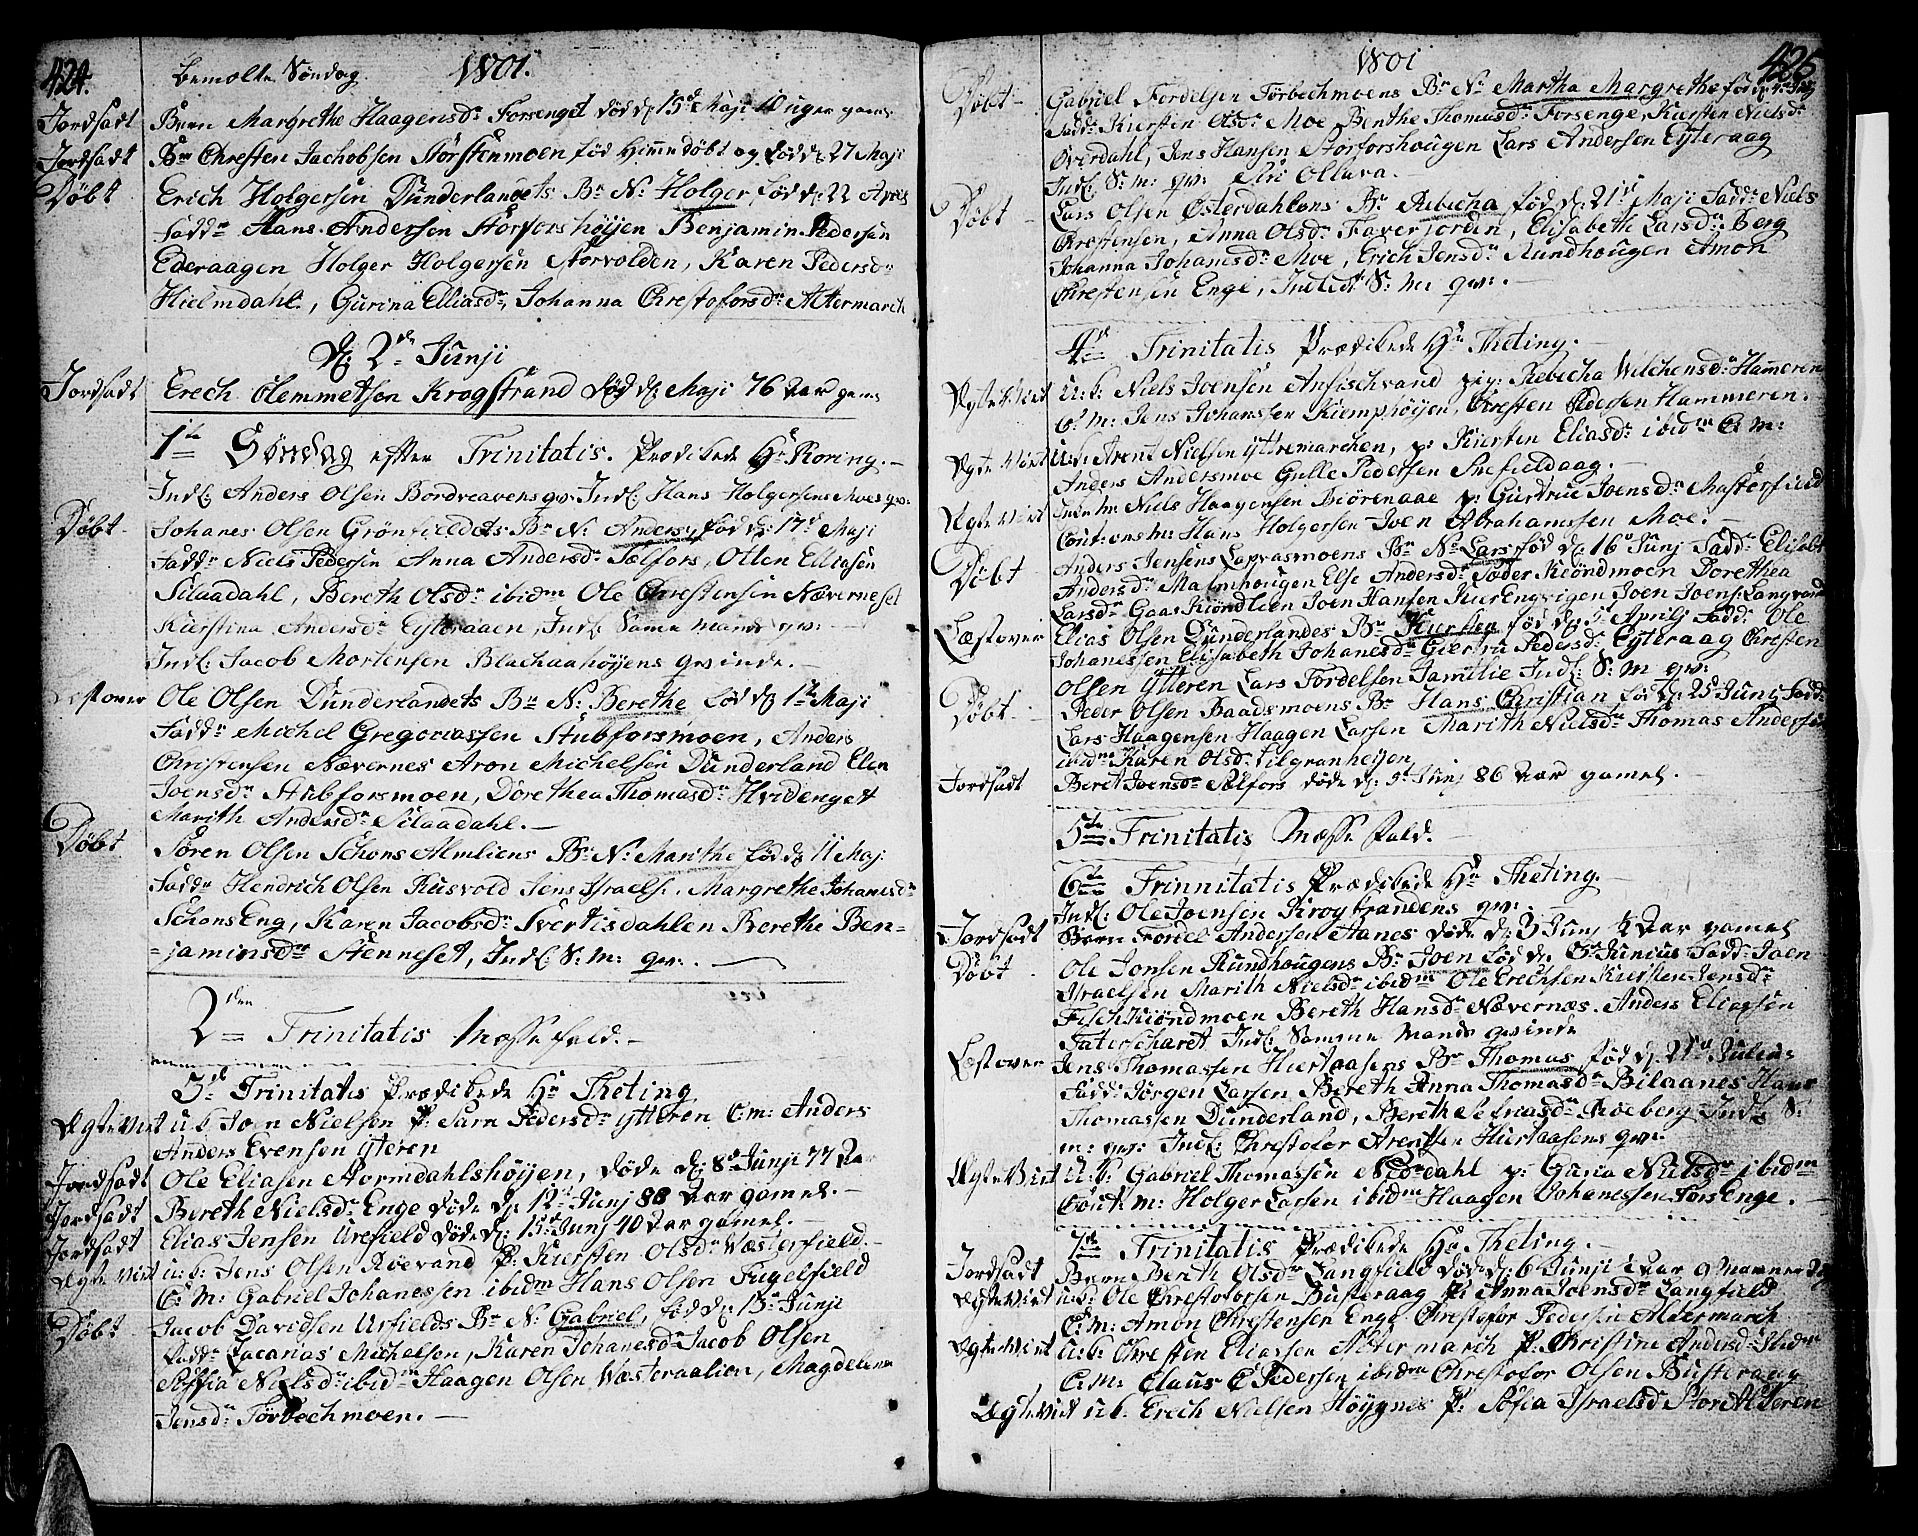 424.
bemelte Søndag 1801.
Jordfadt Barn Margrethe Haagensdr Forsenget død d: 15de Maji 10 uger gaml
Jordfadt Bn Chresten Jachobsen Størstenmoen fød hiemedøbt og død d: 27 Maji
Døbt Erich Holgersen Dunderlandets Bn N: Holger fød d: 22 April
Fadd: Hans Andersen Storforshøijen Benjamin Pedersen
Ederaagen Holger Holgersen Storvolden, Karen Pedersdr
Hielmdahl, Gurina Elliasdr, Johanna Chrestofersdr Altermarch
D: 2den Junji
Jordfadt Erech Clemmetsen Krogstrand død d: Maji 76 aar gaml
1ste Søndag efter Trinitatis. Prædikede Hr Roring.
Indl: Anders Olsen Bordveavens qv: Indl: Hans Holgersens Moes qv:
Døbt Johanes Olsen Grønfieldets Bn N: Anders, fød d: 17de Maji
Fadd: Niels Pedersen Anna Andersdr Sælfors, Otten Elliasen
Silaadahl, Bereth Olsdr ibidm Ole Chrestensen Nævernesel
Kierstina Andersdr Eyteraaen, Indl: Samme Mands qv:
Indl: Jacob Mortensen Blachaahøijens qvinde.
Læst over Ole Olsen Dunderlandets Bn N: Berethe fød d: 1ste Maji
Fadd: Michel Gregoriassen Stubforsmoen, Anders
Christensen Nævernes Aron Michelsen Dunderland Elen
Joensdr Stubforsmoen, Dorethea Thomasdr Hvidenget
Marith Andersdr Silaadahl.
Døbt Søren Olsen Schons Almliens Bn N: Marithe fød d: 11 Maj:
Fadd: Hendrich Olsen Rusvold Jens Israels: Margrethe Johanesdr
Schons Eng, Karen Jacobsdr Svertisdahlen Berethe Ben=
=jaminsdr Stenneset, Indl: S: m: qv:.
2den Trinitatis Messefald.
3de Trinitatis Prædikede Hr Theting
Ægteviet u: b: Joen Nielsen P: Sara Pedersdr Ytteren C: m: Anders
Anders Evensen Yteren
Jordfadt Ole Eliasen Stormdahlshøijen, døde d: 8de Junji 77 aar
Jordfadt Bereth Nielsdr Enge døde d: 12te Junj 88 aar gamel.
Jordfadt Elias Jensen Urefield døde d: 15de Junj 40 aar gamel.
Ægteviet u: b: Jens Olsen Røevand P: Kiersten Olsdr Wæsterfield.
C: M: Gabriel Johanessen ibidm Hans Olsen Fugelfield
Døbt Jacob Davidsen Urfields Bn N: Gabriel, fød d: 13de Junji
Fadd: Zacarias Michelsen, Karen Johanesdr Jacob Olsen
Siffia Nielsdr ibidm Haagen Olsen Wæsteraalien, Magdelena
Jensdr Førbechmoen.
425
1801
Døbt Gabriel Fordelsen Førbechmoens Bn N: Martha Margrethe fød
Fadd: Kiersten Olsdr Moe Benthe Thomasdr Forsenge, Kiersten Nielsdr
Øverdahl, Jens Hansen Storforshougen Lars Andersen Eyteraag
Indl: S: m: qv: Siri Ollava.
Døbt Lars Olsen Østerdahlens Bn Rebecha fød d: 21de Maji Fadd: Niels
Chrestensen, Anna Olsdr Faverjorden, Elisabeth Larsdr Berg
Johanna Johanesdr Moe, Erich Jensdr Rundhougen Amon
Chrestensen Enge, Indledt S: M: qv:.
4de Trinitatis Prædikede Hr Theting.
Ægteviet u: b: Niels Joensen Anfischvand pig: Rebecha Wilchensdr Hammeren
C: M: Jens Johanssen Kiemphøijen, Chresten Pedersen Hammeren.
Ægteviet u: b: Arent Nielsen Yttremarchen, p: Kiersten Eliasdr ibidm C M:
Anders Andersmoe Gulle Pedersen Snefieldaag.
Ægteviet Niels Haagensen Biørenaae p: Gurtrue Joensdr Masterfield
Cont:ons m: Hans Holgersen Joen Abrahamsen Moe.
Døbt Anders Jensens Lapvasmoens Bn N: Lars fød d: 16de Junj Fadd: Elisabt
Andersdr Malmhougen Else Andersdr Søder Kiøndmoen Dorethea
Larsdr Gaas Kiøndlien Joen Hansen Kierengvigen Joen Joens: Langvand
Læst over Elias Olsen Dunderlandes Bn Kiersten fød d: 5te Aprilj Fadd: Ole
Johanessen Elisabeth Johanesdr Giertru Pedersdr Eyteraag Chresten
Olsen Ytteren Lars Fordelsen Familie Indl: S: M qv:
Døbt Peder Olsen Baadsmoens Bn Hans Christian fød d: 25 Junj Fadd:
Lars Haagensen Haagen Larsen Marith Nielsdr Thomas Andersen
ibidm Karen Olsdr Silgranheijen
Jordfadt Beret Joensdr Sælfors døde d: Junj 86 aar gamel.
5te Trinitatis Messe fald.
6te Trinnitatis Prædikede Hr Theting.
Indl: Ole Joensen Krogstrandens qv:.
Jordfadt Barn Fordel Andersen Aanes døde d: 3 Junj aar gamel
Døbt Ole Jonsen Rundhougens Bn Joen fød d: 8de Junius Fadd: Joen
Israelsen Marith Nielsdr ibidm Ole Erechsen Kiersten Jensdr
Fisch Kiøndmoen Bereth Hansdr Nævernæs. Anders Eliassen
Taterscharet Indl: Samme Mands qvinde
Læst over Jens Thomassen Hiertaasens Bn Thomas fød d:
Fadd: Jørgen Larsen, Bereth Anna Thomasdr Bilaanes Hans
Thomassen Dunderland, Bereth Røeberg Indl: S:
m: qv: Indl: Chrestofer Arentsen Hiertaasens qv:
Ægteviet u: b: Gabriel Thomassen Nedrdahl p: Guria Nielsdr ibidm
Cont: m: Holger Larsen ibidm Haagen Johanessen Fors Enge.
7de Trinitatis Prædikede Hr Theting.
Jordfadt Barn Bereth Olsdr Langfield død d: 6 Junji 1 aar 9 Maaneder
Ægteviet u: b: Ole Chrestofersen Busteraag P: Anna Joensdr Langfield
C: M: Amon Chrestensen Enge Chrestofer Pedersen Altermarch
Ægteviet u: b: Chresten Eliassen Altermarch P: Christine Andersdr ibidm
C: M: Claus C Pedersen ibidm Chrestofer Olsen Busteraag
Ægteviet u: b: Erech Nielsen Høijgnes P: Sofia Israelsd Stor Alteren